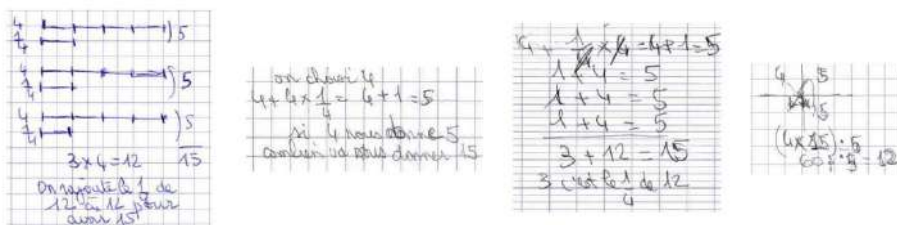 4
1/4
) 5
4
1/4
) 5
4
1/4
) 5
3 x 4 = 12
15
On rajoute le 1/4 de
12 à 12 pour
avoir 15
on choisi 4
4 + 4 x 1/4 = 4 + 1 = 5
si 4 nous donne 5
combien va nous donner 15
4 + 1/4 x 4 = 4 + 1 = 5
1 + 4 = 5
1 + 4 = 5
1 + 4 = 5
3 + 12 = 15
3 c'est le 1/4 de 12
4 5
15
(4 x 15) : 5
60 : 5 = 12